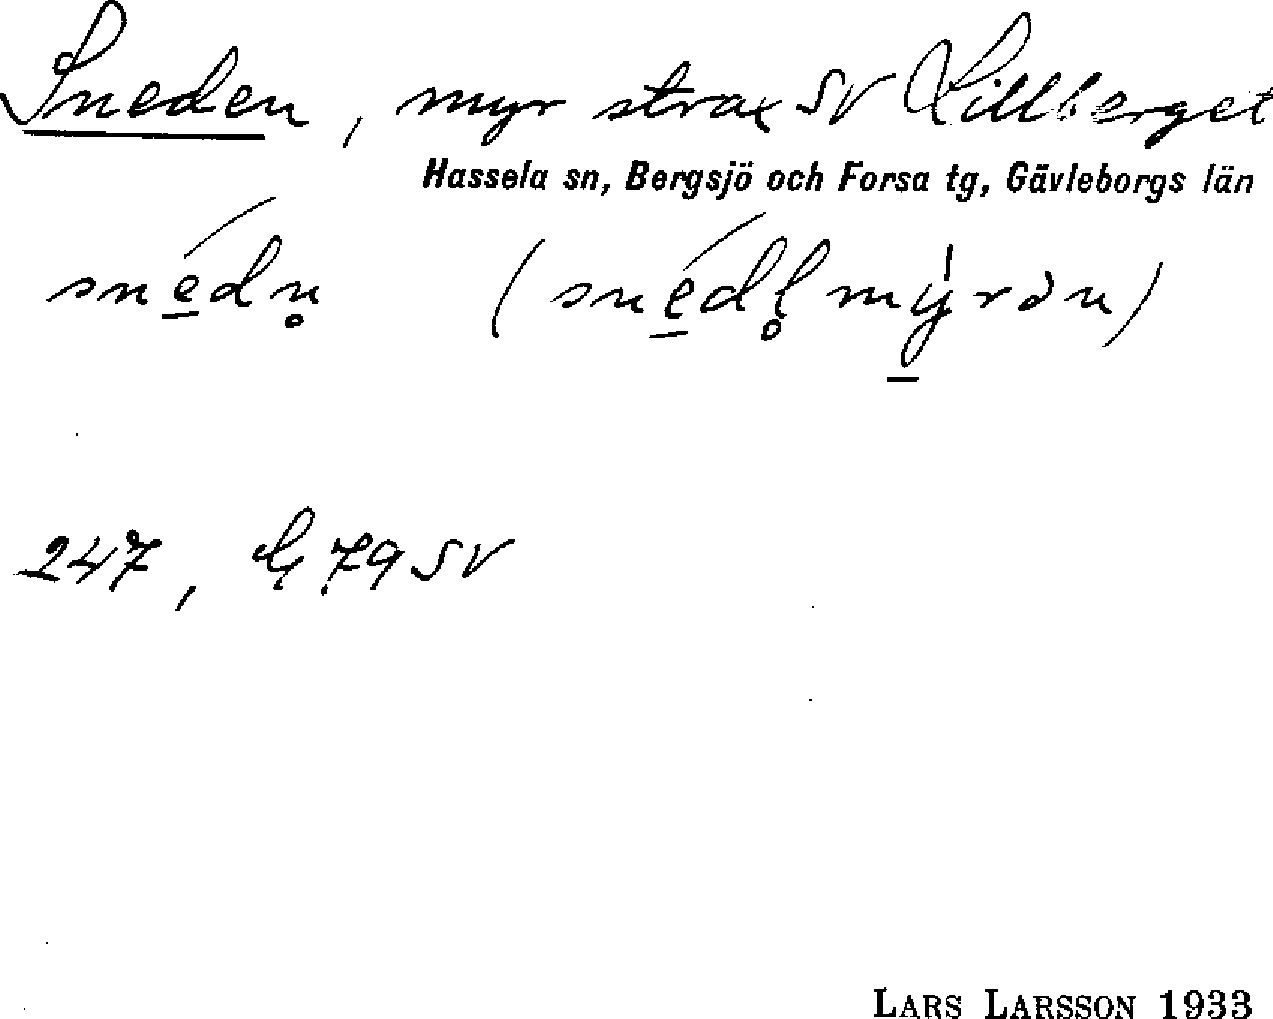 Sneden, myr strax SV Lillberget
Hassela sn, Bergsjö och Forsa tg, Gävleborgs län
snédn̥ (snédl̥mýrən)
247, G 79 SV
LARS LARSSON 1933